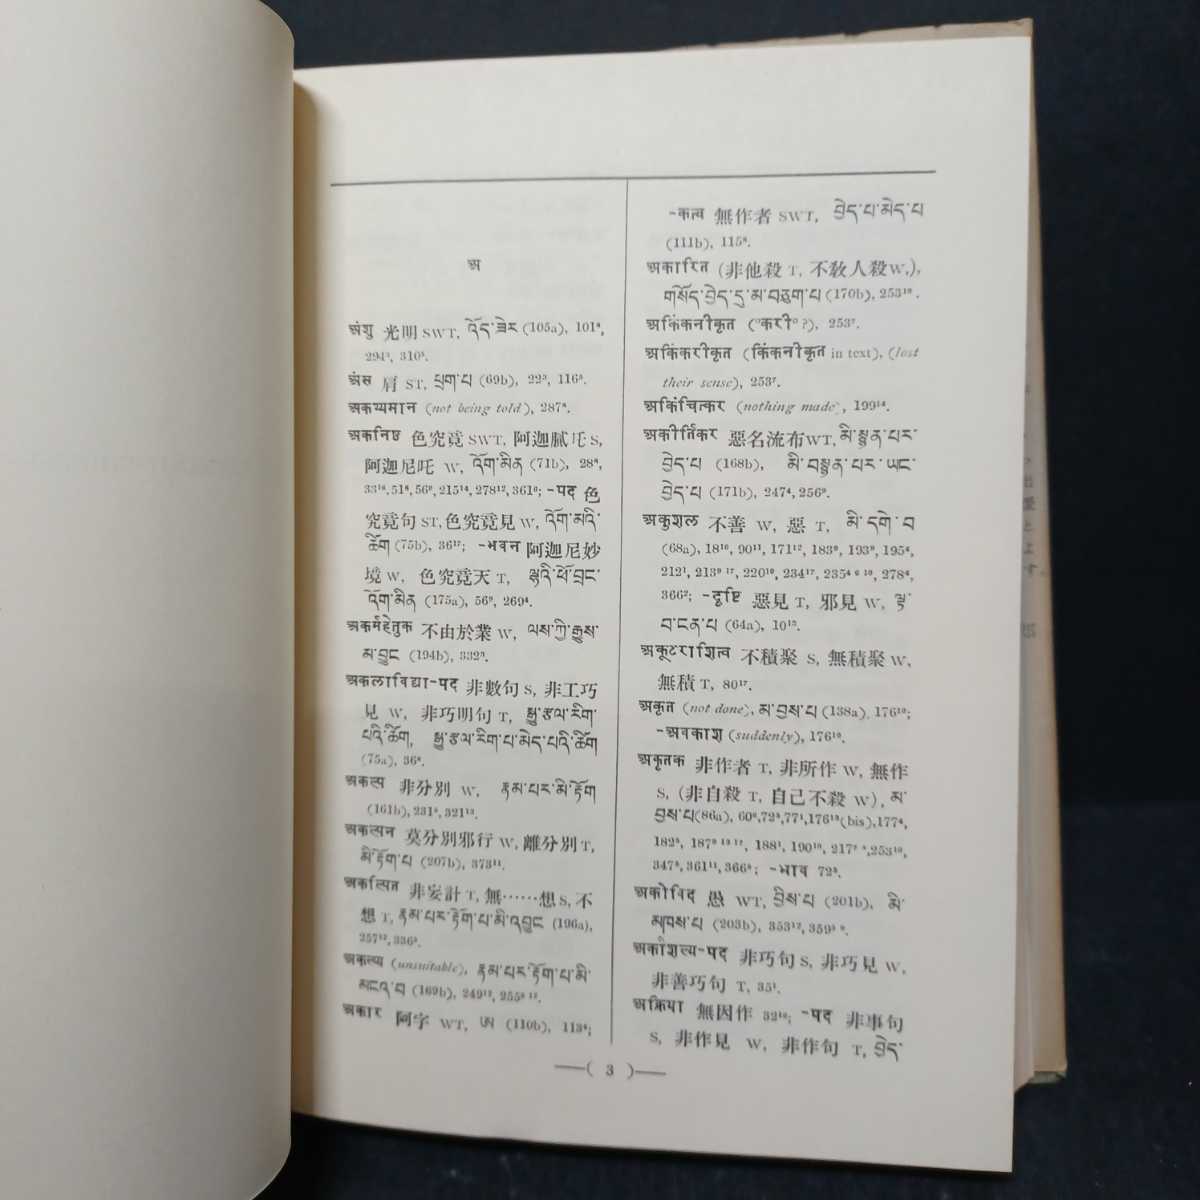 अ
अंशु 光明 SWT, འོད་ཟེར (105a), 101⁸,
294¹, 310⁵.
अंस 肩 ST, ཕྲག་པ (69b), 22³, 116⁵.
अकथ्यमान (not being told), 287⁸.
अकनिष्ठ 色究竟 SWT, 阿迦膩吒 S,
阿迦尼吒 W, འོག་མིན (71b), 28⁸,
33¹⁶, 51⁸, 56⁹, 215¹⁴, 278¹², 361⁶; -पद 色
究竟句 ST, 色究竟見 W, འོག་མའི་
ཚིག (75b), 36¹⁷; -भवन 阿迦尼妙
境 W, 色究竟天 T, ལྷའི་ཕོ་བྲང་
འོག་མིན (175a), 56⁹, 269⁴.
अकर्महेतुक 不由於業 W, ལས་ཀྱི་རྒྱུས་
མ་བྱུང (194b), 332⁹.
अकलाविद्या-पद 非數句 S, 非工巧
見 W, 非巧明句 T, སྒྱུ་རྩལ་རིག་
པའི་ཚིག, སྒྱུ་རྩལ་རིག་པ་མེད་པའི་ཚིག
(75a), 36⁸.
अकल्प 非分別 W, རྣམ་པར་མི་རྟོག
(161b), 231⁵, 321¹³.
अकल्पन 莫分別邪行 W, 離分別 T,
མི་རྟོག་པ (207b), 373¹¹.
अकल्पित 非妄計 T, 無……想 S, 不
想 T, རྣམ་པར་རྟོག་པ་མི་འབྱུང (196a),
257¹², 336⁵.
अकल्प्य (unsuitable), རྣམ་པར་རྟོག་པ་མི་
མངའ་བ (169b), 249¹³, 255⁹ ¹².
अकार 阿字 WT, ཨ (110b), 113⁴;
-कत्व 無作者 SWT, བྱེད་པ་མེད་པ
(111b), 115⁸.
अकारित (非他殺 T, 不教人殺 W,),
གསོད་བྱེད་དུ་མ་བཅུག་པ (170b), 253¹⁰.
अकिंकनीकृत (°करी° ?), 253⁷.
अकिंकरीकृत (किंकनीकृत in text), (lost
their sense), 253⁷.
अकिंचित्कर (nothing made), 199¹⁴.
अकीर्तिकर 惡名流布 WT, མི་སྙན་པར་
བྱེད་པ (168b), མི་བསྙན་པར་ཡང་
བྱེད་པ (171b), 247⁴, 256⁹.
अकुशल 不善 W, 惡 T, མི་དགེ་བ
(68a), 18¹⁶, 90¹¹, 171¹², 183⁹, 193⁹, 195⁶,
212¹, 213⁹ ¹⁷, 220¹⁰, 234¹⁷, 235⁴ ⁶ ¹⁰, 278⁶,
366²; -दृष्टि 惡見 T, 邪見 W, ལྟ་
བ་ངན་པ (64a), 10¹⁵.
अकूटराशित्व 不積聚 S, 無積聚 W,
無積 T, 80¹⁷.
अकृत (not done), མ་བྱས་པ (138a), 176¹⁰;
-अवकाश (suddenly), 176¹⁰.
अकृतक 非作者 T, 非所作 W, 無作
S, (非自殺 T, 自己不殺 W), མ་
བྱས་པ (86a), 60⁶, 72⁵, 77¹, 176¹³ (bis), 177⁴,
182⁵, 187⁹ ¹³ ¹⁷, 188¹, 190¹⁰, 217⁷ ⁸, 253¹⁰,
347⁸, 361¹¹, 366⁸; -भाव 72⁵.
अकोविद 愚 WT, བྱིས་པ (201b), མི་
མཁས་པ (203b), 353¹⁷, 359⁵ ⁹.
अकौशल्य-पद 非巧句 S, 非巧見 W,
非善巧句 T, 35¹.
अक्रिया 無因作 32¹⁶; -पद 非事句
S, 非作見 W, 非作句 T, བྱེད་
—( 3 )—